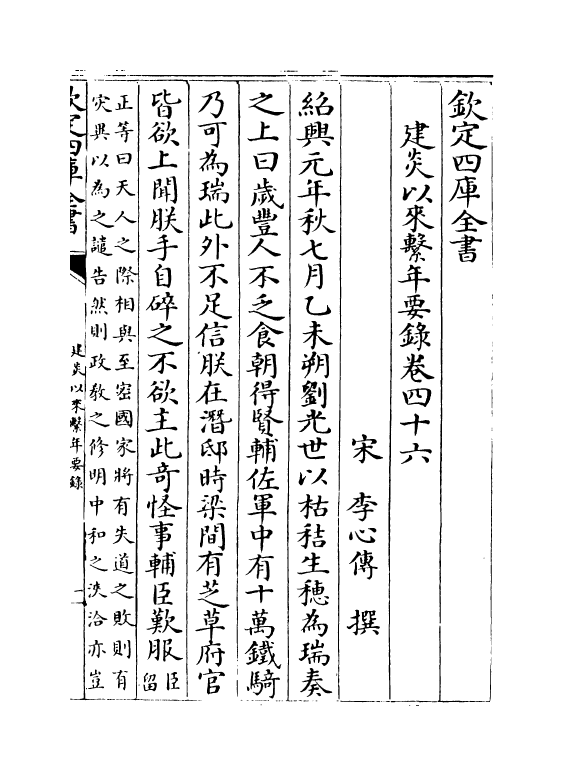 欽定四庫全書
建炎以來繫年要錄卷四十六
宋 李心傳 撰
紹興元年秋七月乙未朔劉光世以枯秸生穗為瑞奏
之上曰歲豐人不乏食朝得賢輔佐軍中有十萬鐵騎
乃可為瑞此外不足信朕在潛邸時梁間有芝草府官
皆欲上聞朕手自碎之不欲主此竒怪事輔臣歎服臣
留
正等曰天人之際相與至宻國家將有失道之敗則有
灾異以為之譴告然則政教之修明中和之浹洽亦豈
欽定四庫全書
建炎以來繫年要錄